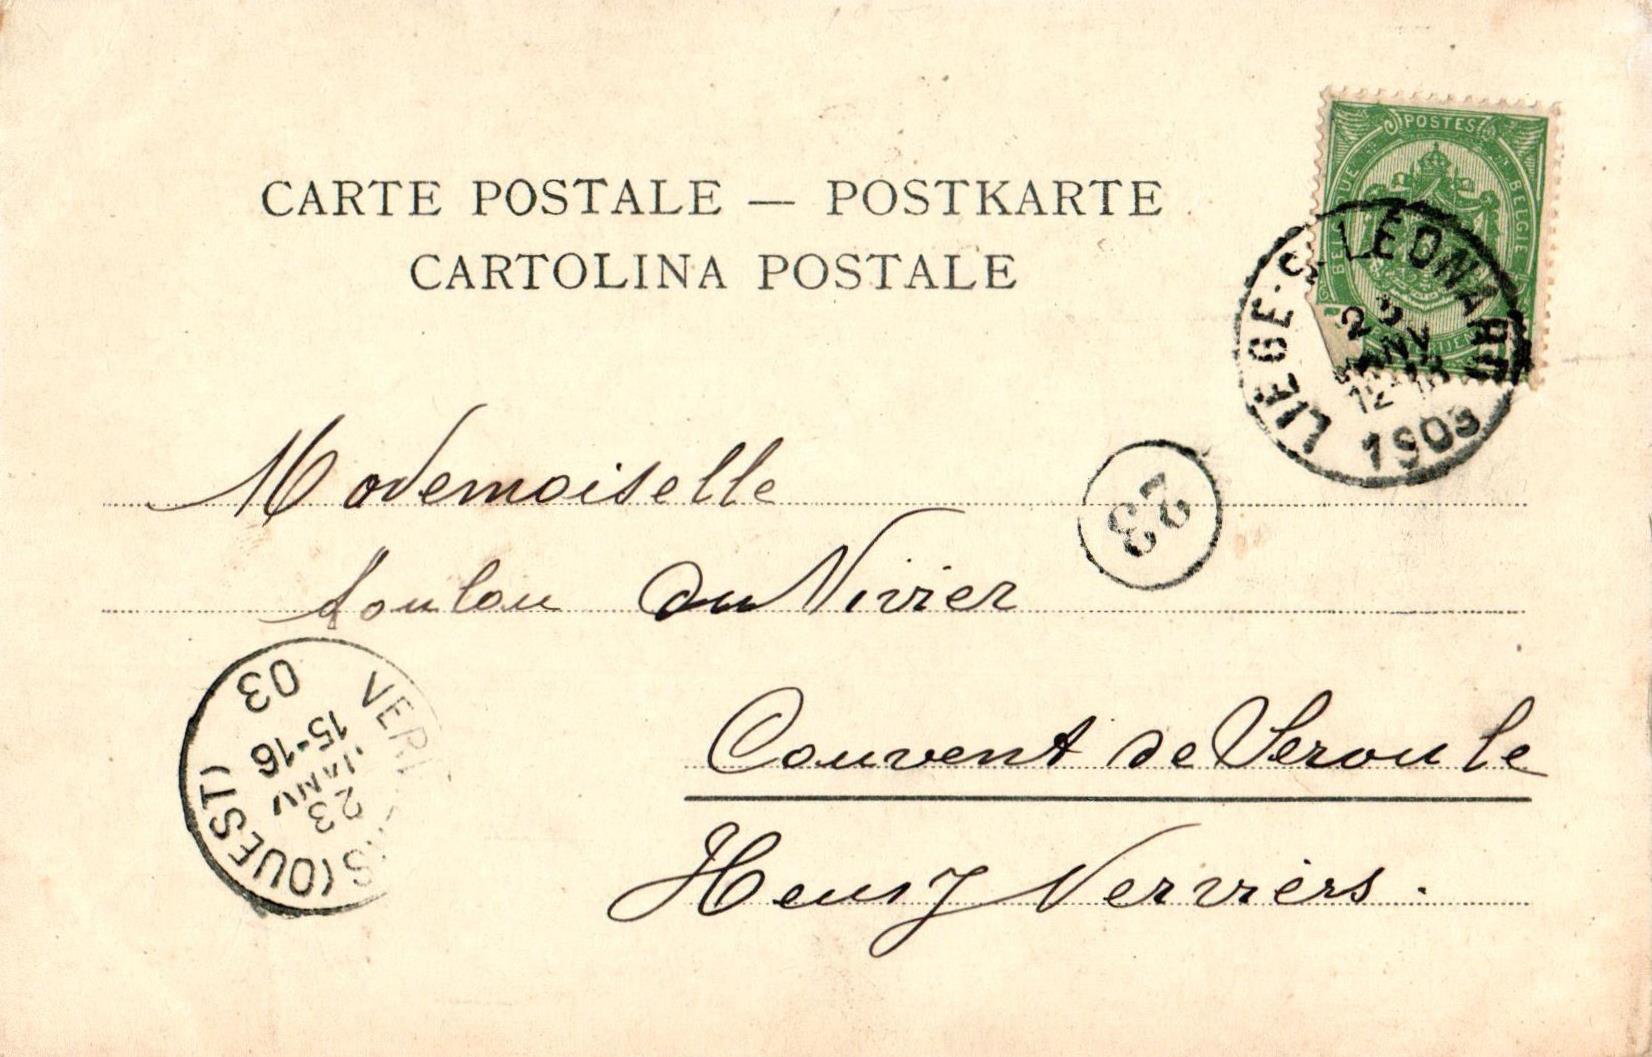 CARTE POSTALE — POSTKARTE
CARTOLINA POSTALE
POSTES
BELGIQUE BELGIE
LIÉGE-St LÉONARD
22
JANV
12
1903
23
Mademoiselle
du Vivier
Couvent de Seroule
Heusy Verviers.
VERVIERS (OUEST)
23
JANV
15-16
03